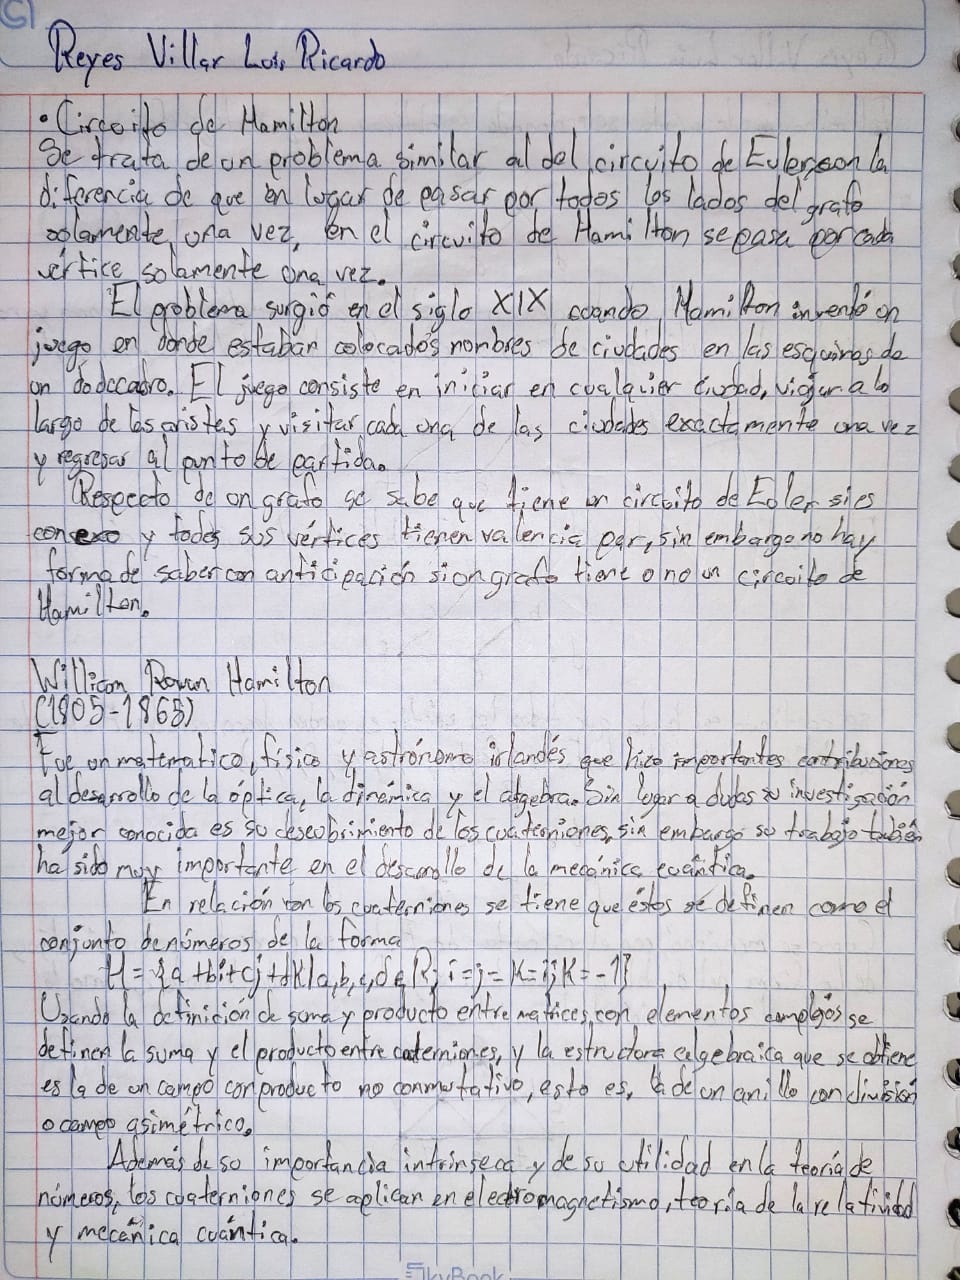 Reyes Villar Luis Ricardo
• Circuito de Hamilton
Se trata de un problema similar al del circuito de Euler, con la
diferencia de que en lugar de pasar por todos los lados del grafo
solamente una vez, en el circuito de Hamilton se pasa por cada
vértice solamente una vez.
El problema surgió en el siglo XIX cuando Hamilton inventó un
juego en donde estaban colocados nombres de ciudades en las esquinas de
un dodecaedro. El juego consiste en iniciar en cualquier ciudad, viajar a lo
largo de las aristas y visitar cada una de las ciudades exactamente una vez
y regresar al punto de partida.
Respecto de un grafo se sabe que tiene un circuito de Euler si es
conexo y todos sus vértices tienen valencia par, sin embargo no hay
forma de saber con anticipación si un grafo tiene o no un circuito de
Hamilton.
William Rowan Hamilton
(1805-1865)
Fue un matematico, físico y astrónomo irlandés que hizo importantes contribuciones
al desarrollo de la óptica, la dinámica y el algebra. Sin lugar a dudas su investigación
mejor conocida es su descubrimiento de los cuaterniones, sin embargo su trabajo también
ha sido muy importante en el desarrollo de la mecánica cuántica.
En relación con los cuaterniones se tiene que éstos se definen como el
conjunto de números de la forma
H = {a + bi + cj + dk | a, b, c, d ∈ R; i = j = k = ijk = -1}
Usando la definición de suma y producto entre matrices con elementos complejos se
definen la suma y el producto entre cuaterniones, y la estructura algebraica que se obtiene
es la de un campo con producto no conmutativo, esto es, la de un anillo con división
o campo asimétrico.
Además de su importancia intrínseca y de su utilidad en la teoría de
números, los cuaterniones se aplican en electromagnetismo, teoría de la relatividad
y mecánica cuántica.
SkyBook